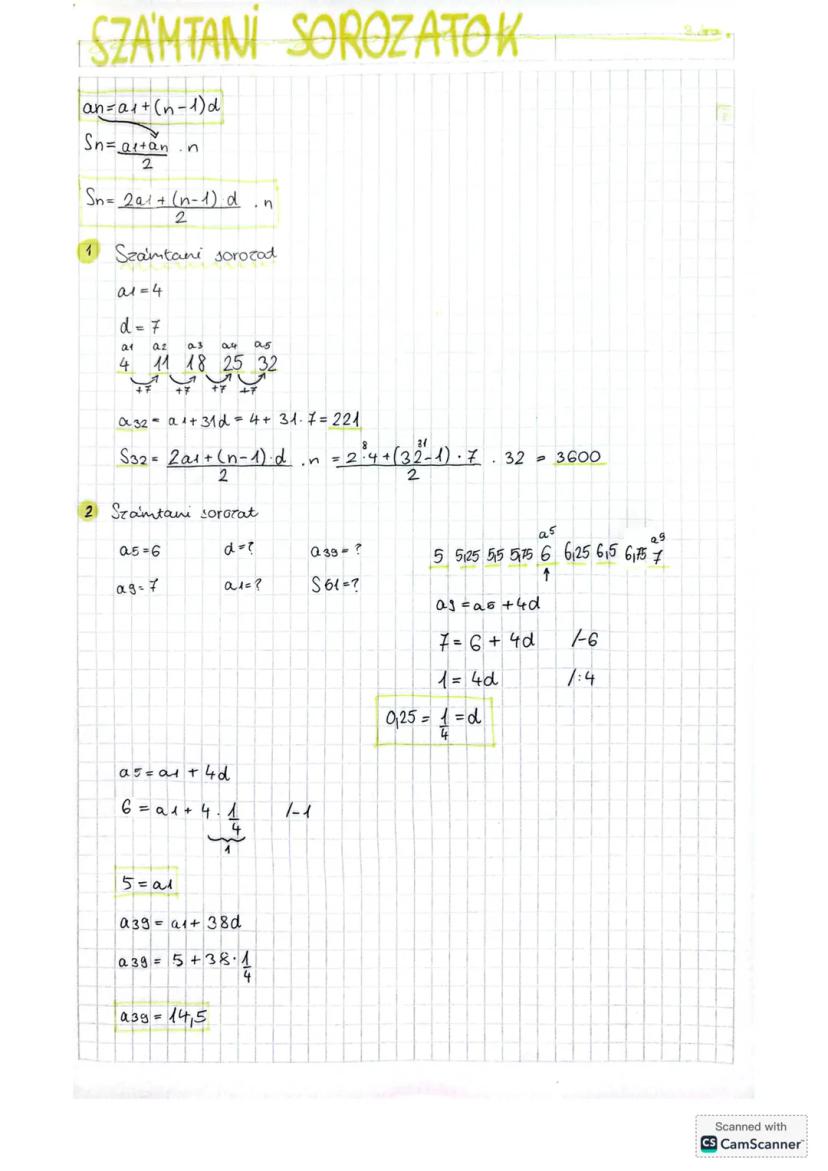 SZÁMTANI SOROZATOK
an=a1+(n-1)d
Sn=a1+an/2 · n
Sn=2a1+(n-1)·d/2 · n
1 Számtani sorozad
a1=4
d=7
a1 a2 a3 a4 a5
4 11 18 25 32
+7 +7 +7 +7
a32=a1+31d=4+31·7=221
8 31
S32=2a1+(n-1)·d/2 ·n=2·4+(32-1)·7/2 · 32 = 3600
2 Számtani sorozat
a5=6 d=? a39=?
a9=7 a1=? S61=?
a5 a9
5 5,25 5,5 5,75 6 6,25 6,5 6,75 7
a9=a5+4d
7=6+4d /-6
1=4d /:4
0,25=1/4=d
a5=a1+4d
6=a1+4·1/4 /-1
1
5=a1
a39=a1+38d
a39=5+38·1/4
a39=14,5
Scanned with
CS CamScanner